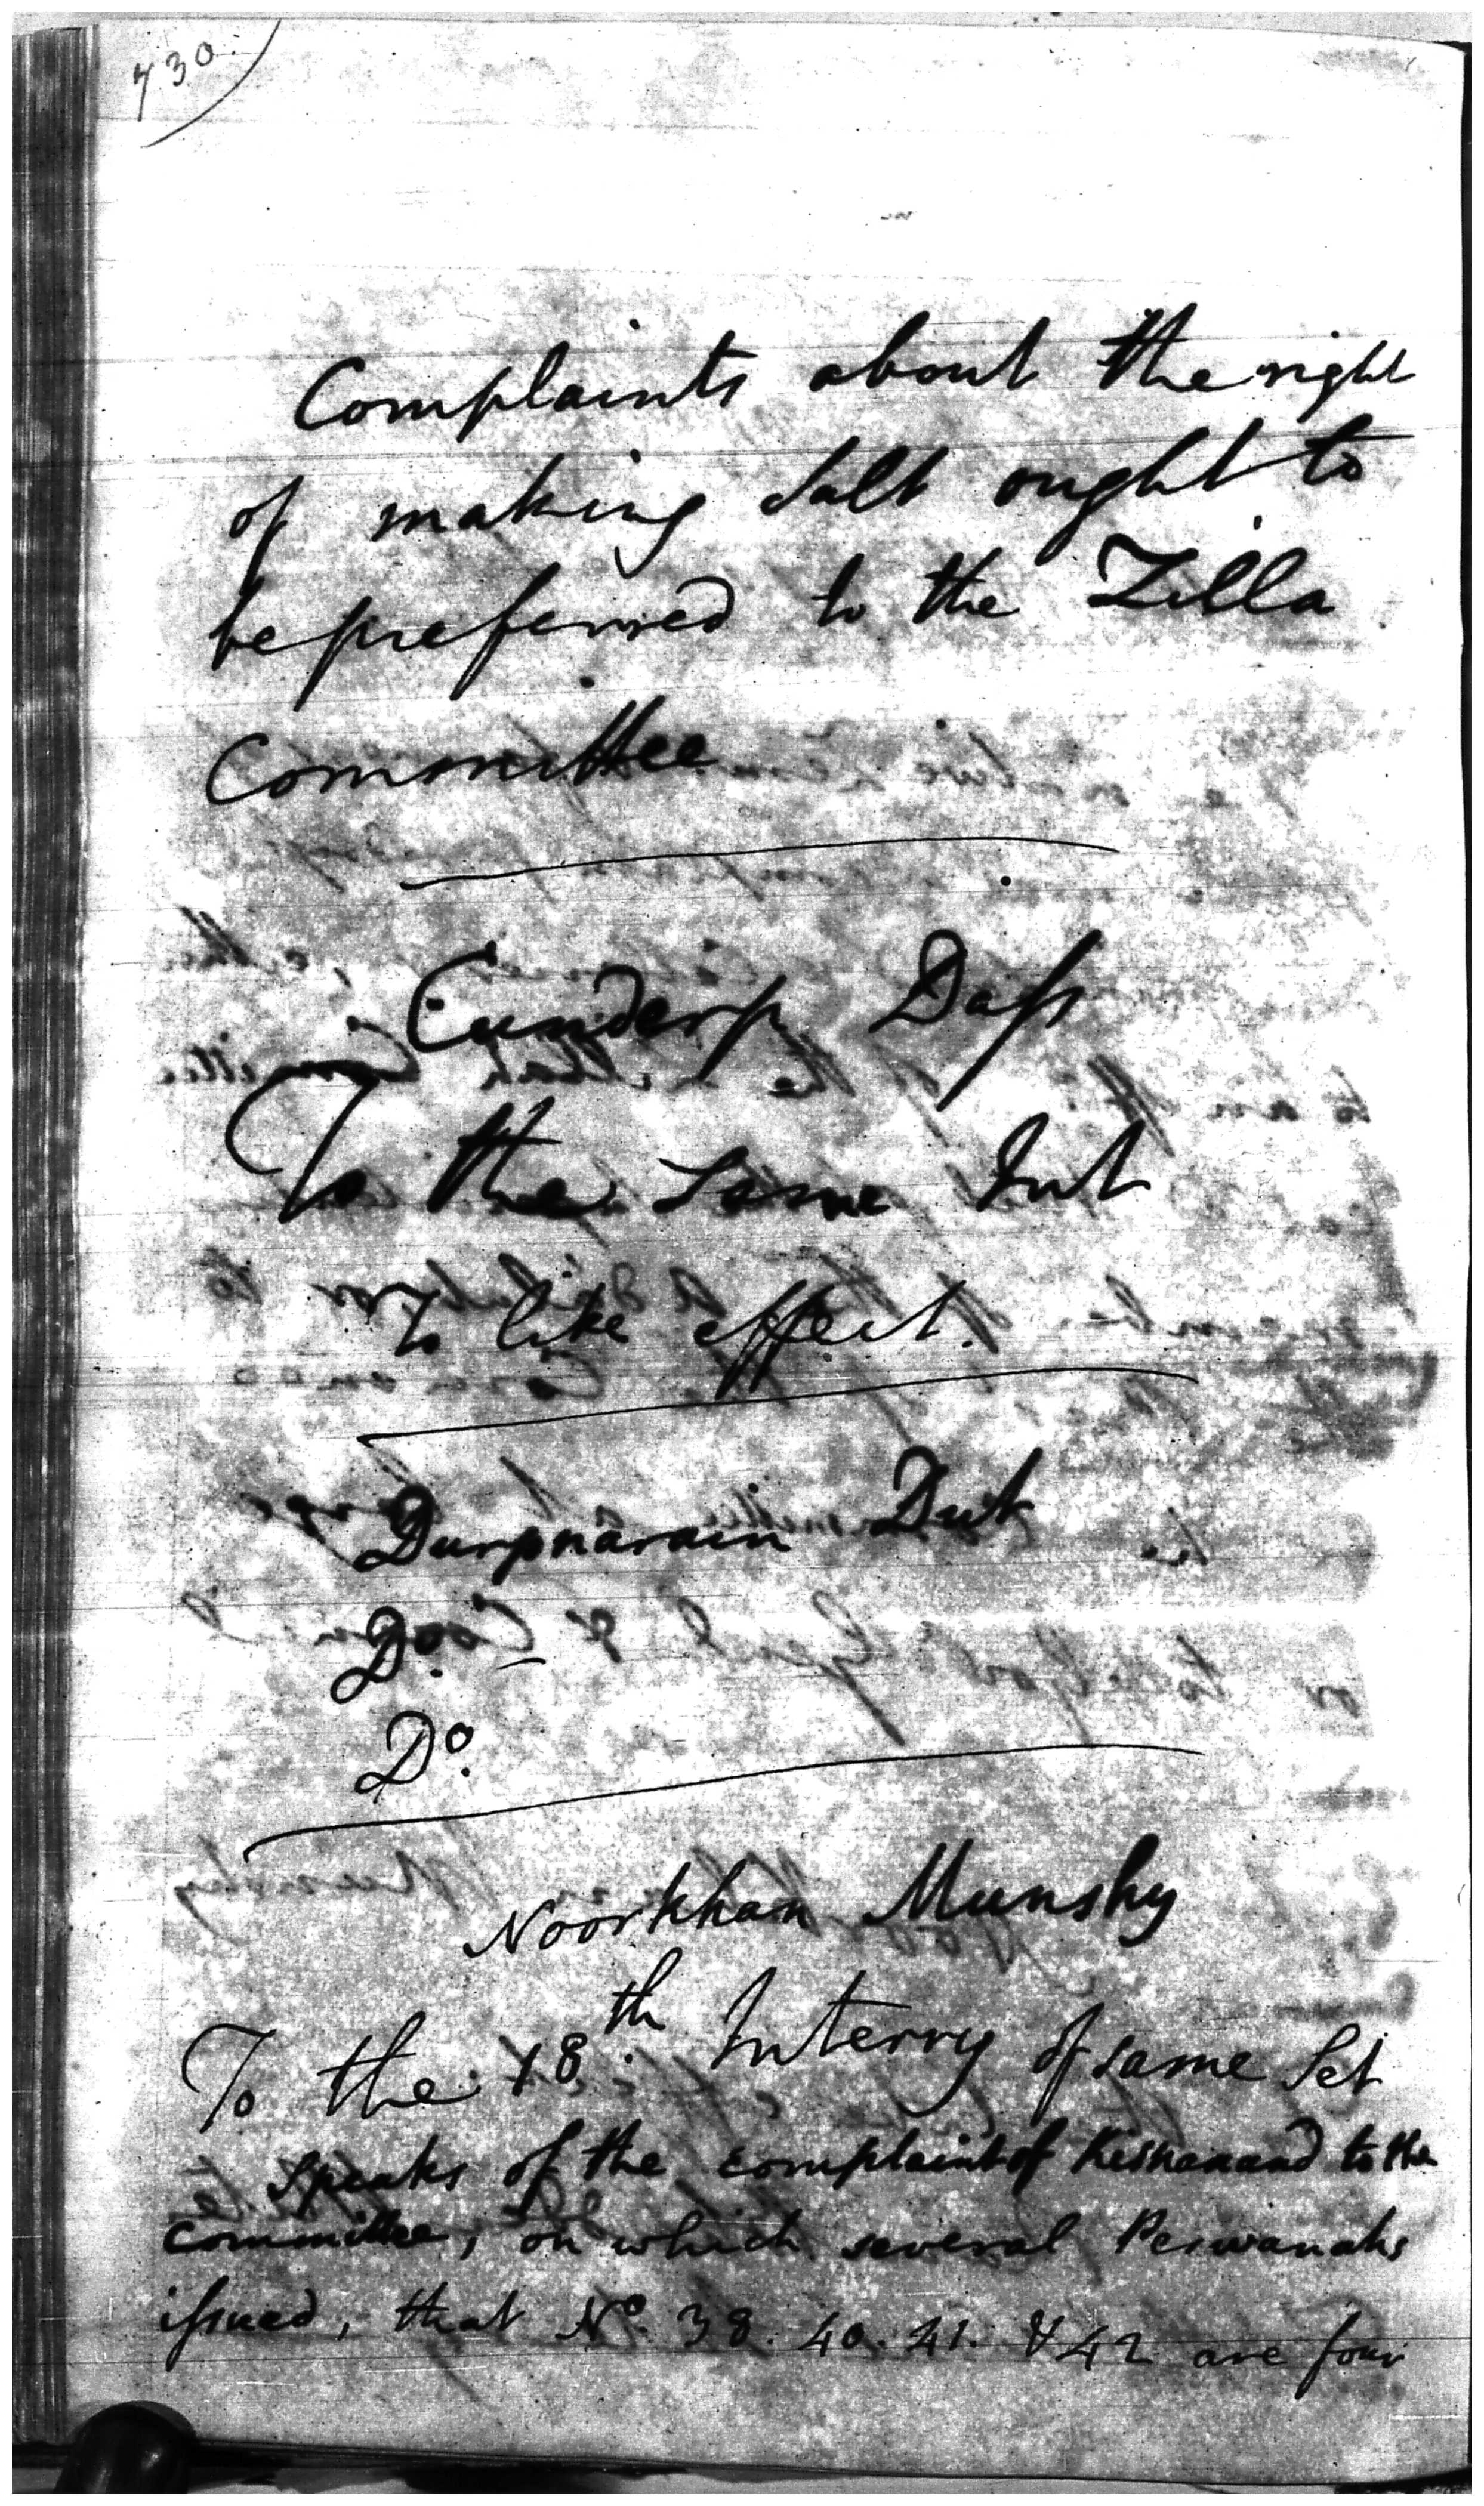 730
Complaints about the right
of making Salt ought to
be preferred to the Zilla
Committee
Cunderp Dass
To the Same Int
to like effect.
Durpnarain Dut
Do.
Do.
Noorkhan Munshy
To the 18th. Interry of same Set
Speaks of the complaint of Kishanand to the
Committee, on which several Perwanahs
issued, that No. 38. 40. 41. & 42 are four